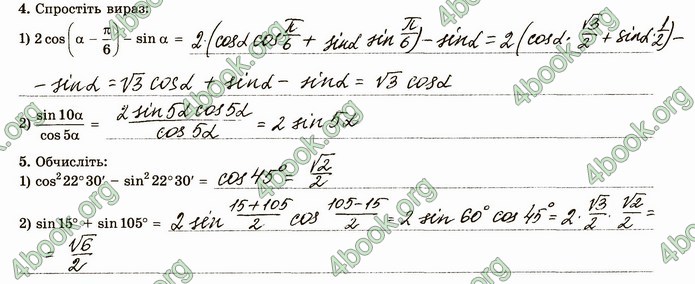 4. Спростіть вираз:
1) 2 cos(α − π/6) − sin α = 2·(cosα cos π/6 + sinα sin π/6) − sinα = 2(cosα·√3/2 + sinα·1/2) −
− sinα = √3 cosα + sinα − sinα = √3 cosα
2) sin 10α / cos 5α = 2 sin 5α cos 5α / cos 5α = 2 sin 5α
5. Обчисліть:
1) cos² 22°30′ − sin² 22°30′ = cos 45° = √2/2
2) sin 15° + sin 105° = 2 sin 15+105/2 cos 105−15/2 = 2 sin 60° cos 45° = 2·√3/2·√2/2 =
= √6/2
4book.org
4book.org
4book.org
4book.org
4book.org
4book.org
4book.org